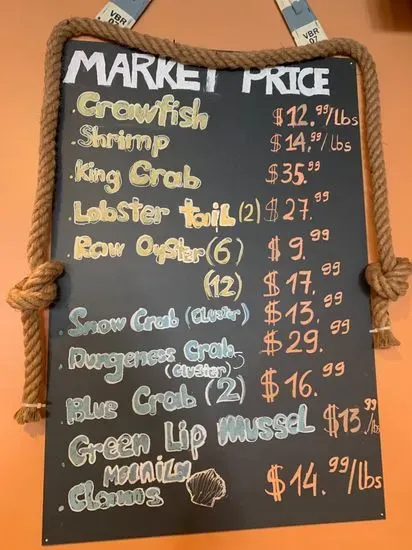 VBR
07
VBR
07
MARKET PRICE
. Crawfish $12.99/lbs
. Shrimp $14.99/lbs
. King Crab $35.99
. Lobster tail (2) $27.99
. Raw Oyster (6) $9.99
(12) $17.99
. Snow Crab (Cluster) $13.99
. Dungeness Crab $29.99
(Cluster)
. Blue Crab (2) $16.99
. Green Lip Mussel $13.99/lbs
Manila
. Clams $14.99/lbs